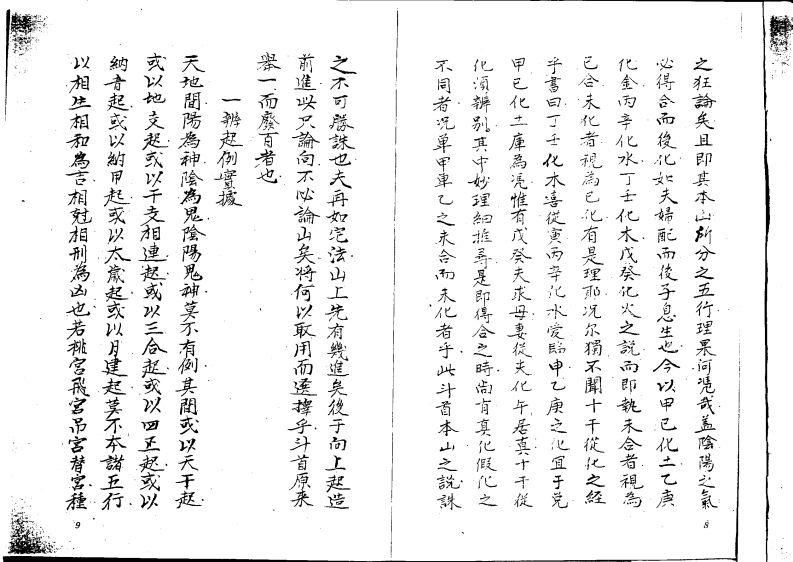 之狂論矣且即其本山所分之五行理果何憑哉蓋陰陽之氣
必得合而後化如夫婦配而後子息生也今以甲已化土乙庚
化金丙辛化水丁壬化木戊癸化火之說而即執未合者視為
已合未化者視為已化有是理耶况尔獨不聞十干從化之經
乎書曰丁壬化木喜從寅丙辛化水愛臨申乙庚之化宜于兌
甲已化土庫為憑惟有戊癸夫求母妻從夫化午居真十干從
化須辨别其中妙理細推尋是即得合之時尚有真化假化之
不同者况單甲單乙之未合而未化者乎此斗首本山之說誅
8
之不可勝誅也夫再如宅法山上先有幾進矣後于向上起造
前進此只論向不必論山矣將何以取用而選擇乎斗首原來
舉一而廢百者也
一辨起例實據
天地間陽為神陰為鬼陰陽鬼神莫不有例其間或以天干起
或以地支起或以干支相連起或以三合起或以四正起或以
納音起或以納甲起或以太歲起或以月建起莫不本諸五行
以相生相和為吉相尅相刑為凶也若挑宮飛宮吊宮替宮種
9